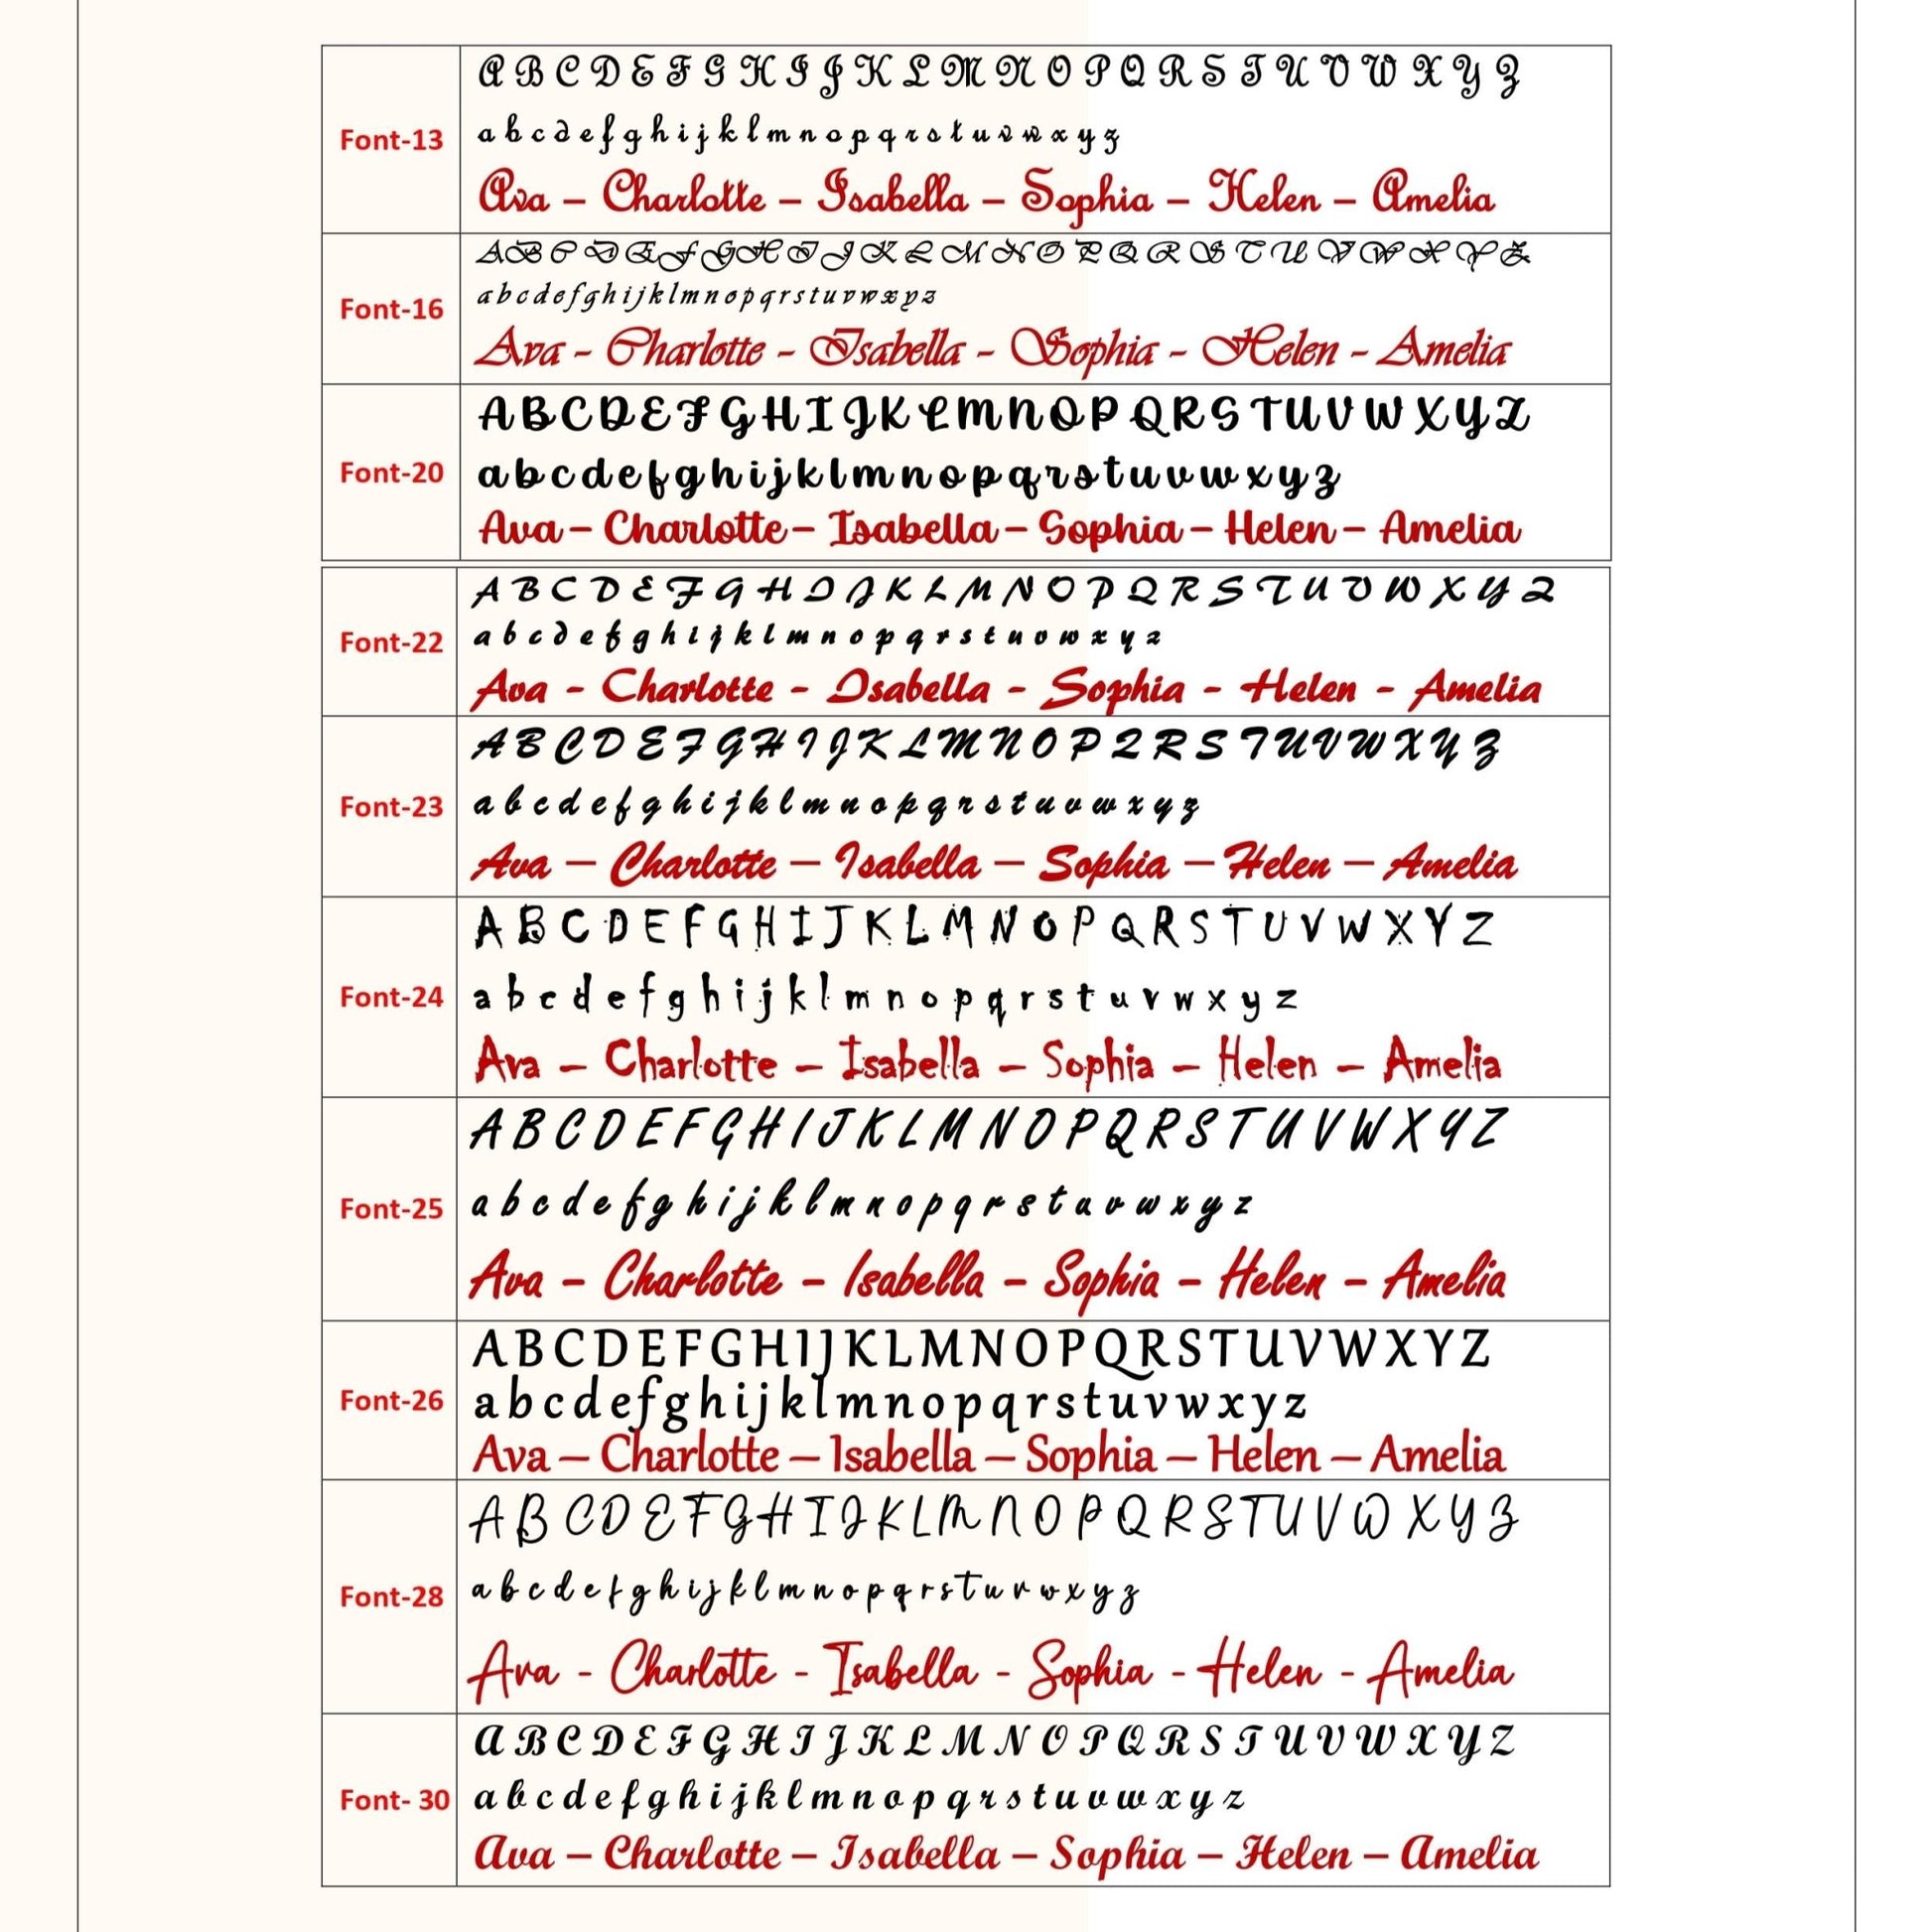 Font-13
A B C D E F G H I J K L M N O P Q R S T U V W X Y Z
a b c d e f g h i j k l m n o p q r s t u v w x y z
Ava – Charlotte – Isabella – Sophia – Helen – Amelia
Font-16
A B C D E F G H I J K L M N O P Q R S T U V W X Y Z
a b c d e f g h i j k l m n o p q r s t u v w x y z
Ava - Charlotte - Isabella - Sophia - Helen - Amelia
Font-20
A B C D E F G H I J K L M N O P Q R S T U V W X Y Z
a b c d e f g h i j k l m n o p q r s t u v w x y z
Ava – Charlotte – Isabella – Sophia – Helen – Amelia
Font-22
A B C D E F G H I J K L M N O P Q R S T U V W X Y Z
a b c d e f g h i j k l m n o p q r s t u v w x y z
Ava - Charlotte - Isabella - Sophia - Helen - Amelia
Font-23
A B C D E F G H I J K L M N O P Q R S T U V W X Y Z
a b c d e f g h i j k l m n o p q r s t u v w x y z
Ava – Charlotte – Isabella – Sophia – Helen – Amelia
Font-24
A B C D E F G H I J K L M N O P Q R S T U V W X Y Z
a b c d e f g h i j k l m n o p q r s t u v w x y z
Ava – Charlotte – Isabella – Sophia – Helen – Amelia
Font-25
A B C D E F G H I J K L M N O P Q R S T U V W X Y Z
a b c d e f g h i j k l m n o p q r s t u v w x y z
Ava – Charlotte – Isabella – Sophia – Helen – Amelia
Font-26
A B C D E F G H I J K L M N O P Q R S T U V W X Y Z
a b c d e f g h i j k l m n o p q r s t u v w x y z
Ava – Charlotte – Isabella – Sophia – Helen – Amelia
Font-28
A B C D E F G H I J K L M N O P Q R S T U V W X Y Z
a b c d e f g h i j k l m n o p q r s t u v w x y z
Ava - Charlotte - Isabella - Sophia - Helen - Amelia
Font- 30
A B C D E F G H I J K L M N O P Q R S T U V W X Y Z
a b c d e f g h i j k l m n o p q r s t u v w x y z
Ava – Charlotte – Isabella – Sophia – Helen – Amelia